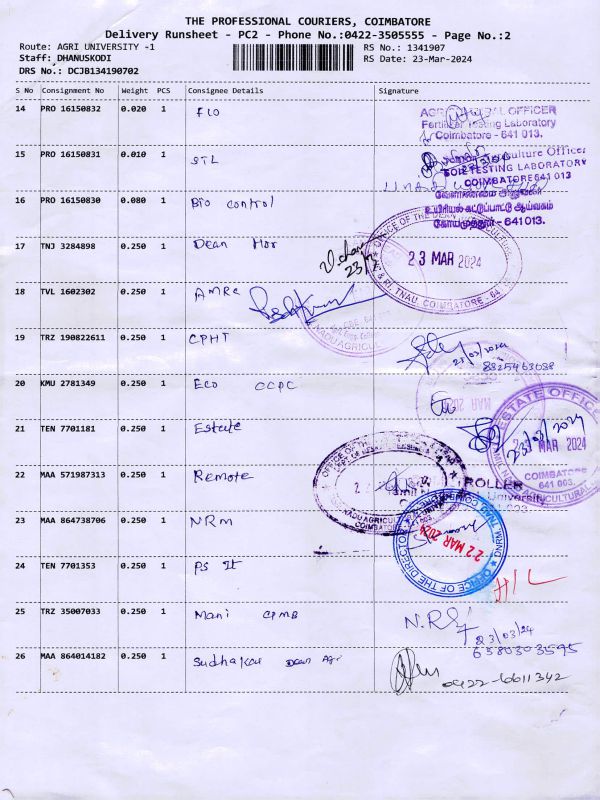 THE PROFESSIONAL COURIERS, COIMBATORE
Delivery Runsheet - PC2 - Phone No.:0422-3505555 - Page No.:2
Route: AGRI UNIVERSITY -1
RS No.: 1341907
Staff: DHANUSKODI
RS Date: 23-Mar-2024
DRS No.: DCJB134190702
S No Consignment No Weight PCS Consignee Details Signature
14 PRO 16150832 0.020 1 FLO
OFFICER
Fertilizer Testing Laboratory
Coimbatore - 641 013.
15 PRO 16150831 0.010 1 STL
Agriculture Officer
SOIL TESTING LABORATORY
COIMBATORE 641 013
16 PRO 16150830 0.080 1 Bio control
வேளாண்மை அலுவலர்
உயிரியல் கட்டுப்பாட்டு ஆய்வகம்
கோயமுத்தூர் - 641 013.
17 TNJ 3284898 0.250 1 Dean Hor
23/3
OFFICE OF THE DEAN
23 MAR 2024
TNAU, COIMBATORE - 64
18 TVL 1602302 0.250 1 AMRC
NADU AGRICUL
19 TRZ 190822611 0.250 1 CPHT
23/03/2024
8825463088
20 KMU 2781349 0.250 1 Eco CCPC
21 TEN 7701181 0.250 1 Estate
23/03/2024
ESTATE OFFICE
23 MAR 2024
COIMBATORE
641 003.
22 MAA 571987313 0.250 1 Remote
OFFICE OF THE
NADU AGRICUL
COIMBATORE
ROLLER
University
23 MAA 864738706 0.250 1 NRM
22 MAR 2024
OFFICE OF THE DIRECTOR
24 TEN 7701353 0.250 1 PS It
H/L
25 TRZ 35007033 0.250 1 Mani CPMB
23/03/24
6380303595
26 MAA 864014182 0.250 1 Sudhakar Dean Agri
0422-6611342